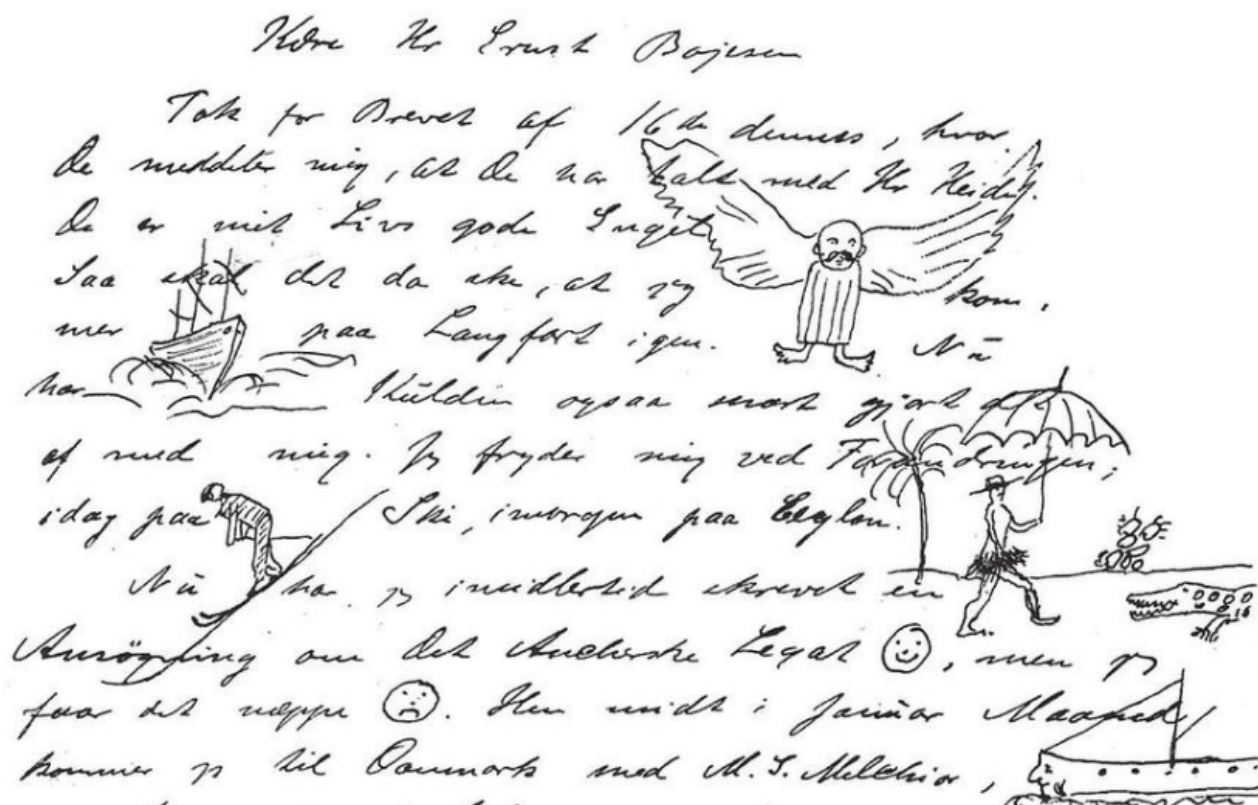 Kære Hr Ernst Bojesen
Tak for Brevet af 16de denness, hvor
De meddeler mig, at De har talt med Hr Heide.
De er mit Livs gode Engel
Saa skal det da ske, at jeg kom-
mer paa Langfart igen. Nū
har Kūlden ogsaa snart gjort det
af med mig. Jeg fryder mig ved Forandringen;
idag paa Ski, imorgen paa Ceylon.
Nū har jeg imidlertid skrevet en
Ansögning om det Anckerske Legat, men jeg
faar det næppe. Hen midt i Janūar Maaned
kommer jeg til Danmark med M.S. Melchior,